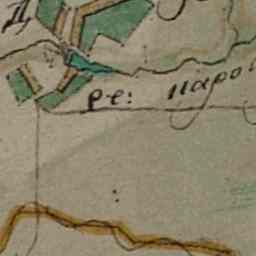 Д
ре: паро